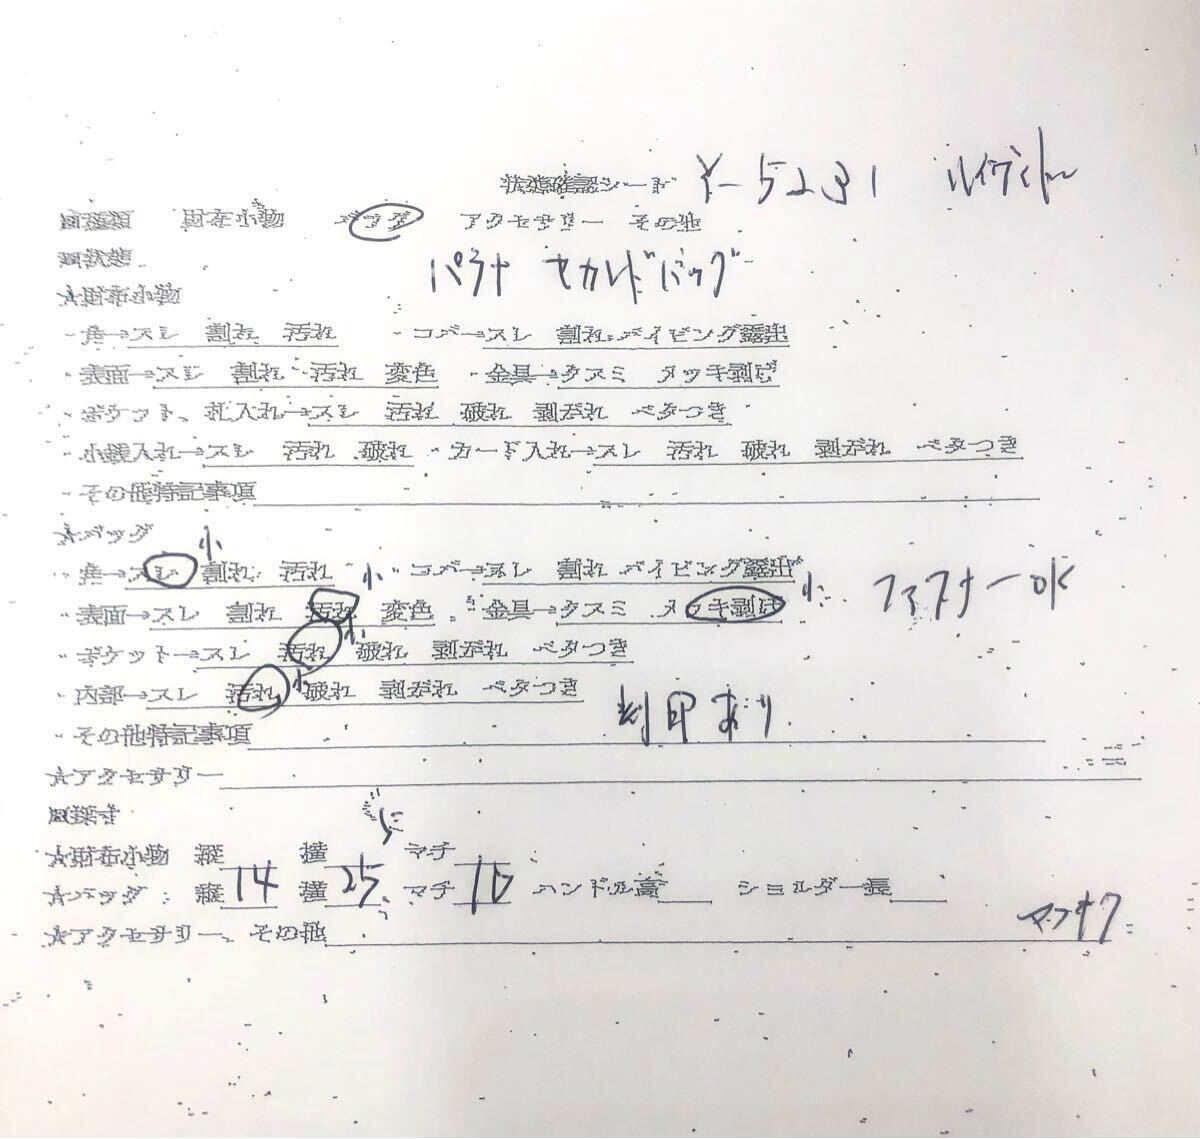 状態確認シート Y-5231 ルイヴィトン
■種類 財布小物 バッグ アクセサリー その他
■状態
パラナ セカンドバッグ
★財布小物
・角→スレ 割れ 汚れ ・コバ→スレ 割れ パイピング露出
・表面→スレ 割れ 汚れ 変色 ・金具→クスミ メッキ剥げ
・ポケット、札入れ→スレ 汚れ 破れ 剥がれ ベタつき
・小銭入れ→スレ 汚れ 破れ ・カード入れ→スレ 汚れ 破れ 剥がれ ベタつき
・その他特記事項
★バッグ
小
・角→スレ 割れ 汚れ 小 ・コバ→スレ 割れ パイピング露出
・表面→スレ 割れ 汚れ 変色 ・金具→クスミ メッキ剥げ 小 ファスナーOK
・ポケット→スレ 汚れ 小 破れ 剥がれ ベタつき
・内部→スレ 汚れ 小 破れ 剥がれ ベタつき
刻印あり
・その他特記事項
★アクセサリー
■採寸
★財布小物 縦 横 マチ
★バッグ：縦 14 横 25 マチ ハンドル高 ショルダー長
★アクセサリー、その他